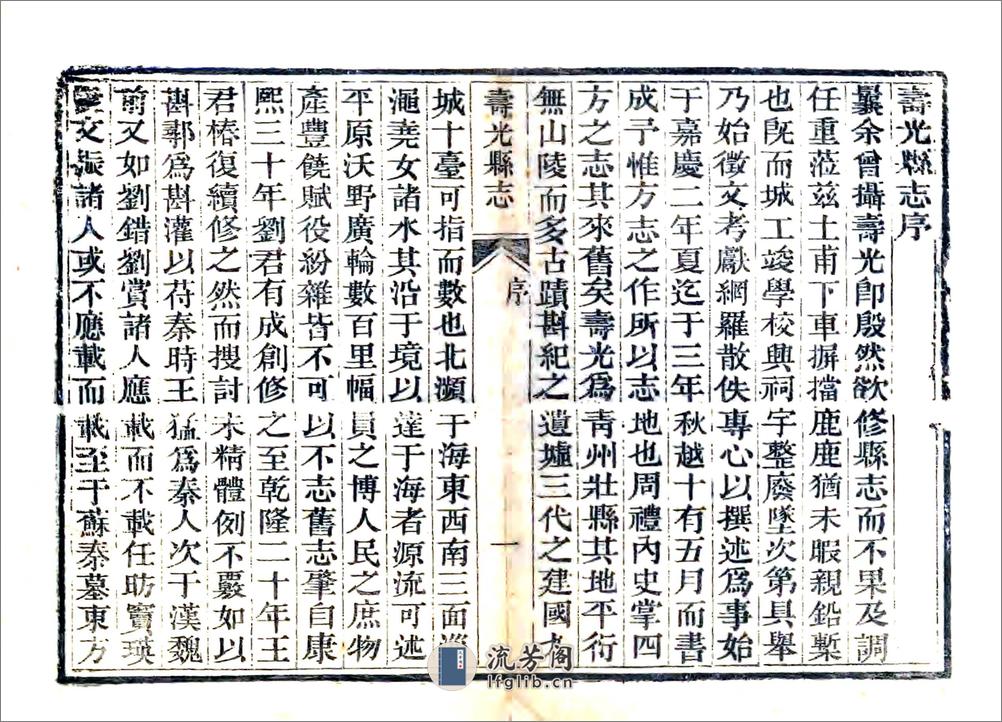 壽光縣志序
曩余曾攝壽光卽殷然欲修縣志而不果及調
任重蒞茲土甫下車摒擋鹿鹿猶未暇親鉛槧
也旣而城工竣學校興祠宇整廢墜次第具舉
乃始徵文考獻網羅散佚專心以撰述爲事始
于嘉慶二年夏迄于三年秋越十有五月而書
成予惟方志之作所以志地也周禮內史掌四
方之志其來舊矣壽光爲靑州壯縣其地平衍
無山陵而多古蹟斟紀之遺墟三代之建國九
壽光縣志
序
一
城十臺可指而數也北瀕于海東西南三面
澠堯女諸水其沿于境以達于海者源流可述
平原沃野廣輪數百里幅員之博人民之庶物
產豐饒賦役紛雜皆不可以不志舊志肇自康
熙三十年劉君有成創修之至乾隆二十年王
君椿復續修之然而搜討未精體例不覈如以
斟鄩爲斟灌以苻秦時王猛爲秦人次于漢魏
前又如劉錯劉賞諸人應載而不載任昉竇瑛
文振諸人或不應載而載至于蘇秦墓東方
流芳阁
lfglib.cn